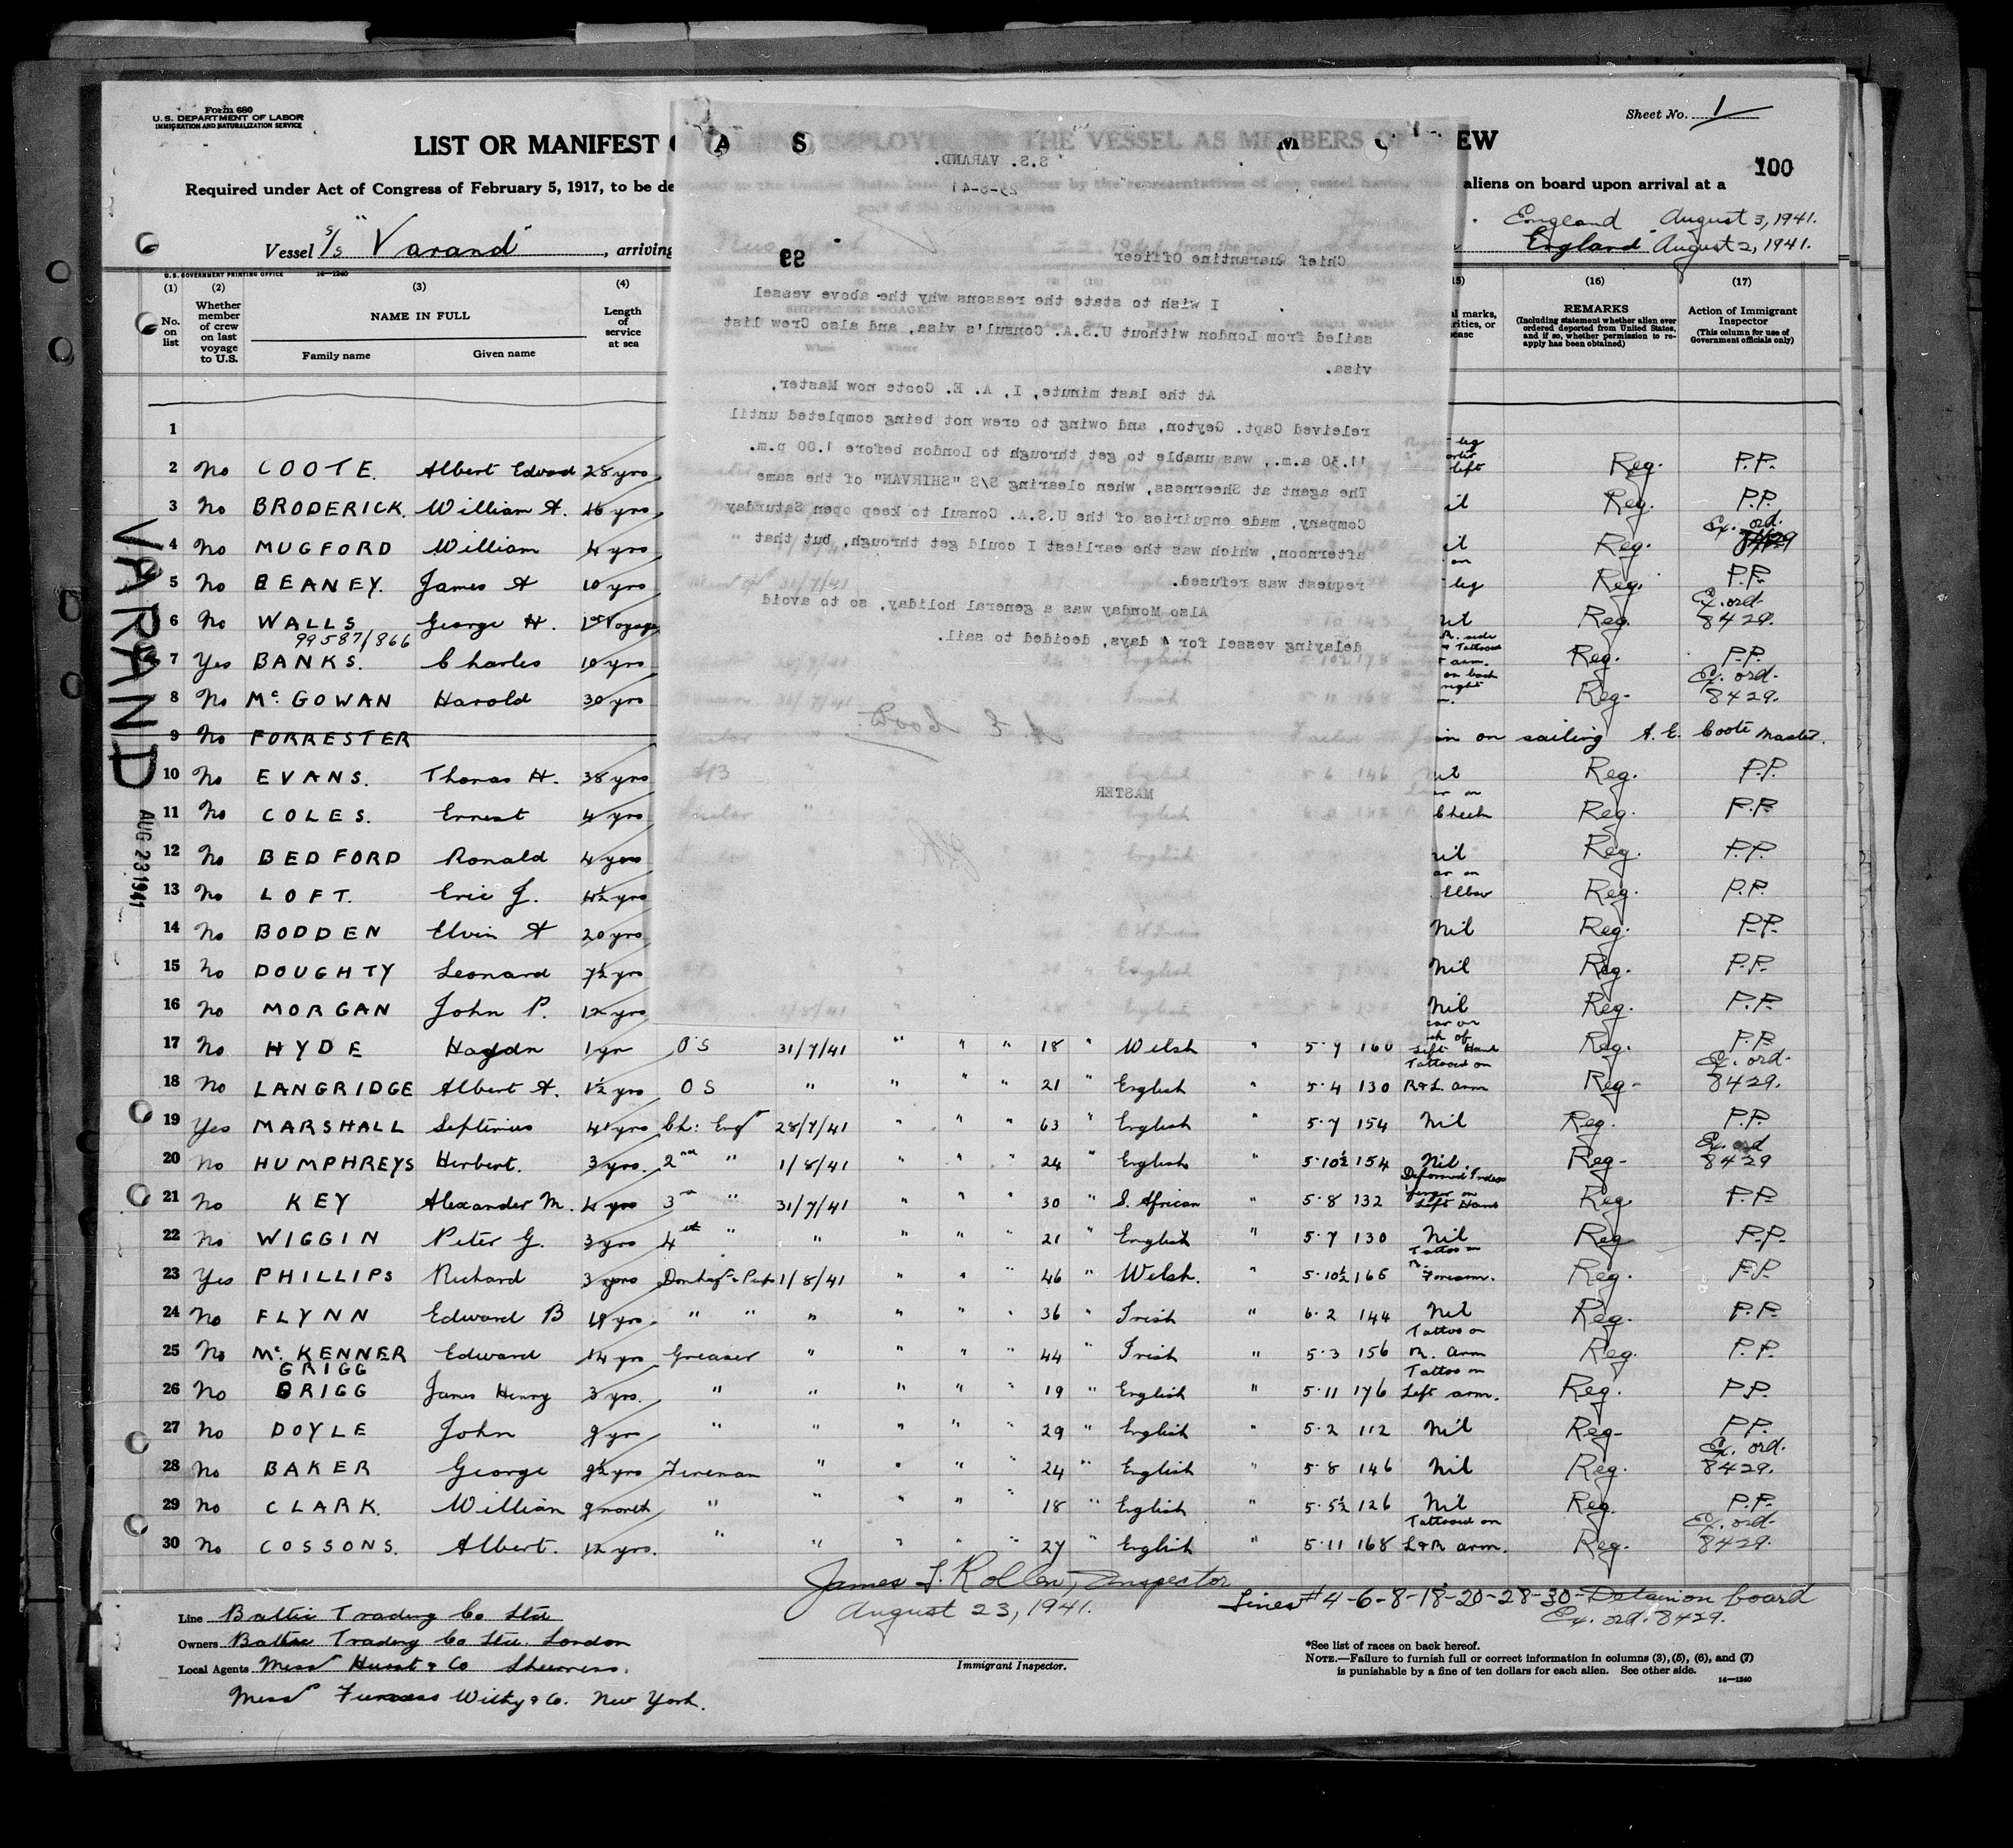 Form 680
U. S. DEPARTMENT OF LABOR
IMMIGRATION AND NATURALIZATION SERVICE
Sheet No. 1
LIST OR MANIFEST OF ALIENS EMPLOYED ON THE VESSEL AS MEMBERS OF CREW
100
Required under Act of Congress of February 5, 1917, to be de
aliens on board upon arrival at a
England August 3, 1941.
Vessel S/S "Varand", arriving
England August 2, 1941.
U. S. GOVERNMENT PRINTING OFFICE 14—1240
(1) (2) (3) (4) (16) (17)
No. on list
Whether member of crew on last voyage to U.S.
NAME IN FULL
Family name Given name
Length of service at sea
REMARKS
(Including statement whether alien ever ordered deported from United States, and if so, whether permission to re-apply has been obtained)
Action of Immigrant Inspector
(This column for use of Government officials only)
S.S. VARAND.
99
Chief Quarantine Officer
I wish to state the reasons why the above vessel
sailed from London without U.S.A. Consul's visa, and also Crew list
visa.
At the last minute, I, A. E. Coote now Master,
releived Capt. Geyton, and owing to crew not being completed until
11.30 a.m., was unable to get through to London before 1.00 p.m.
The agent at Sheerness, when clearing S/S "SHIRVAN" of the same
Company, made enquiries of the U.S.A. Consul to keep open Saturday
afternoon, which was the earliest I could get through, but that
request was refused.
Also Monday was a general holiday, so to avoid
delaying vessel for 4 days, decided to sail.
A. E. Coote
MASTER
VARAND
AUG 23 1941
1
2 No COOTE. Albert Edward 28 yrs left Reg. P.P.
3 No BRODERICK. William A. 16 yrs Reg. P.P.
4 No MUGFORD William 4 yrs Reg. Ex. ord. 8429
5 No BEANEY. James A 10 yrs leg Reg. P.P.
6 No WALLS George H. 1st Voyage nil Reg. Ex. ord. 8429.
99587/866
7 Yes BANKS. Charles 10 yrs arm. Reg. P.P.
8 No McGOWAN Harold 30 yrs Reg. Ex. ord. 8429.
9 No FORRESTER on sailing A. E. Coote Master.
10 No EVANS. Thomas H. 38 yrs AB Reg. P.P.
11 No COLES. Ernest 4 yrs Cheek Reg. P.P.
12 No BEDFORD Ronald 4 yrs nil Reg. P.P.
13 No LOFT. Eric J. 4½ yrs Elbow Reg. P.P.
14 No BODDEN Elvin A 20 yrs Nil Reg. P.P.
15 No DOUGHTY Leonard 7½ yrs Nil Reg. P.P.
16 No MORGAN John P. 12 yrs Nil Reg. P.P.
17 No HYDE Haydn 1 yr OS 31/7/41 " " " 18 " Welsh " 5·7 160 Left Hand Reg. P.P.
18 No LANGRIDGE Albert A. 1½ yrs OS " " " " 21 " English " 5·4 130 Tattooed on R & L. arm Reg- Ex. ord. 8429.
19 Yes MARSHALL Septimus 41 yrs Ch: Engr 28/7/41 " " " 63 " English " 5·7 154 Nil Reg. P.P.
20 No HUMPHREYS Herbert. 3 yrs. 2nd " 1/8/41 " " " 24 " English " 5·10½ 154 Nil. Reg- Ex. ord 8429
21 No KEY Alexander M. 4 yrs 3rd " 31/7/41 " " " 30 " S. African " 5·8 132 Deformed Index finger on Left Hand Reg P.P.
22 No WIGGIN Peter G. 3 yrs 4th " " " " " 21 " English " 5·7 130 Nil Reg P.P.
23 Yes PHILLIPS Richard 3 yrs 1/8/41 " " " 46 " Welsh. " 5·10½ 165 Tattoo on R. Forearm. Reg. P.P.
24 No FLYNN Edward B 19 yrs. " " " " " " 36 " Irish " 6·2 144 Nil Reg. P.P.
25 No McKENNER Edward 14 yrs Greaser " " " " 44 " Irish " 5·3 156 Tattoo on R. Arm Reg. P.P.
GRIGG
26 No BRIGG James Henry 3 yrs. " " " " " 19 " English " 5·11 176 Tattoo on Left arm. Reg. P.P.
27 No DOYLE John 9 yrs " " " " " 29 " English " 5·2 112 Nil Reg- P.P.
28 No BAKER George 9½ yrs Fireman " " " " 24 " English " 5·8 146 Nil Reg. Ex. ord. 8429.
29 No CLARK. William 9 month " " " " " 18 " English " 5·5½ 126 Nil Reg. P.P.
30 No COSSONS. Albert. 12 yrs. " " " " " 27 " English " 5·11 168 Tattooed on L & R arm. Reg. Ex. ord. 8429.
James J. Rollen, Inspector
August 23, 1941.
Lines #4-6-8-18-20-28-30-Detain on board
Ex. ord. 8429.
Line Baltic Trading Co Ltd
Owners Baltic Trading Co Ltd. London
Local Agents Messrs Hurst & Co Sheerness.
Messrs Furness Withy & Co. New York.
Immigrant Inspector.
*See list of races on back hereof.
NOTE.—Failure to furnish full or correct information in columns (3), (5), (6), and (7)
is punishable by a fine of ten dollars for each alien. See other side.
14—1240